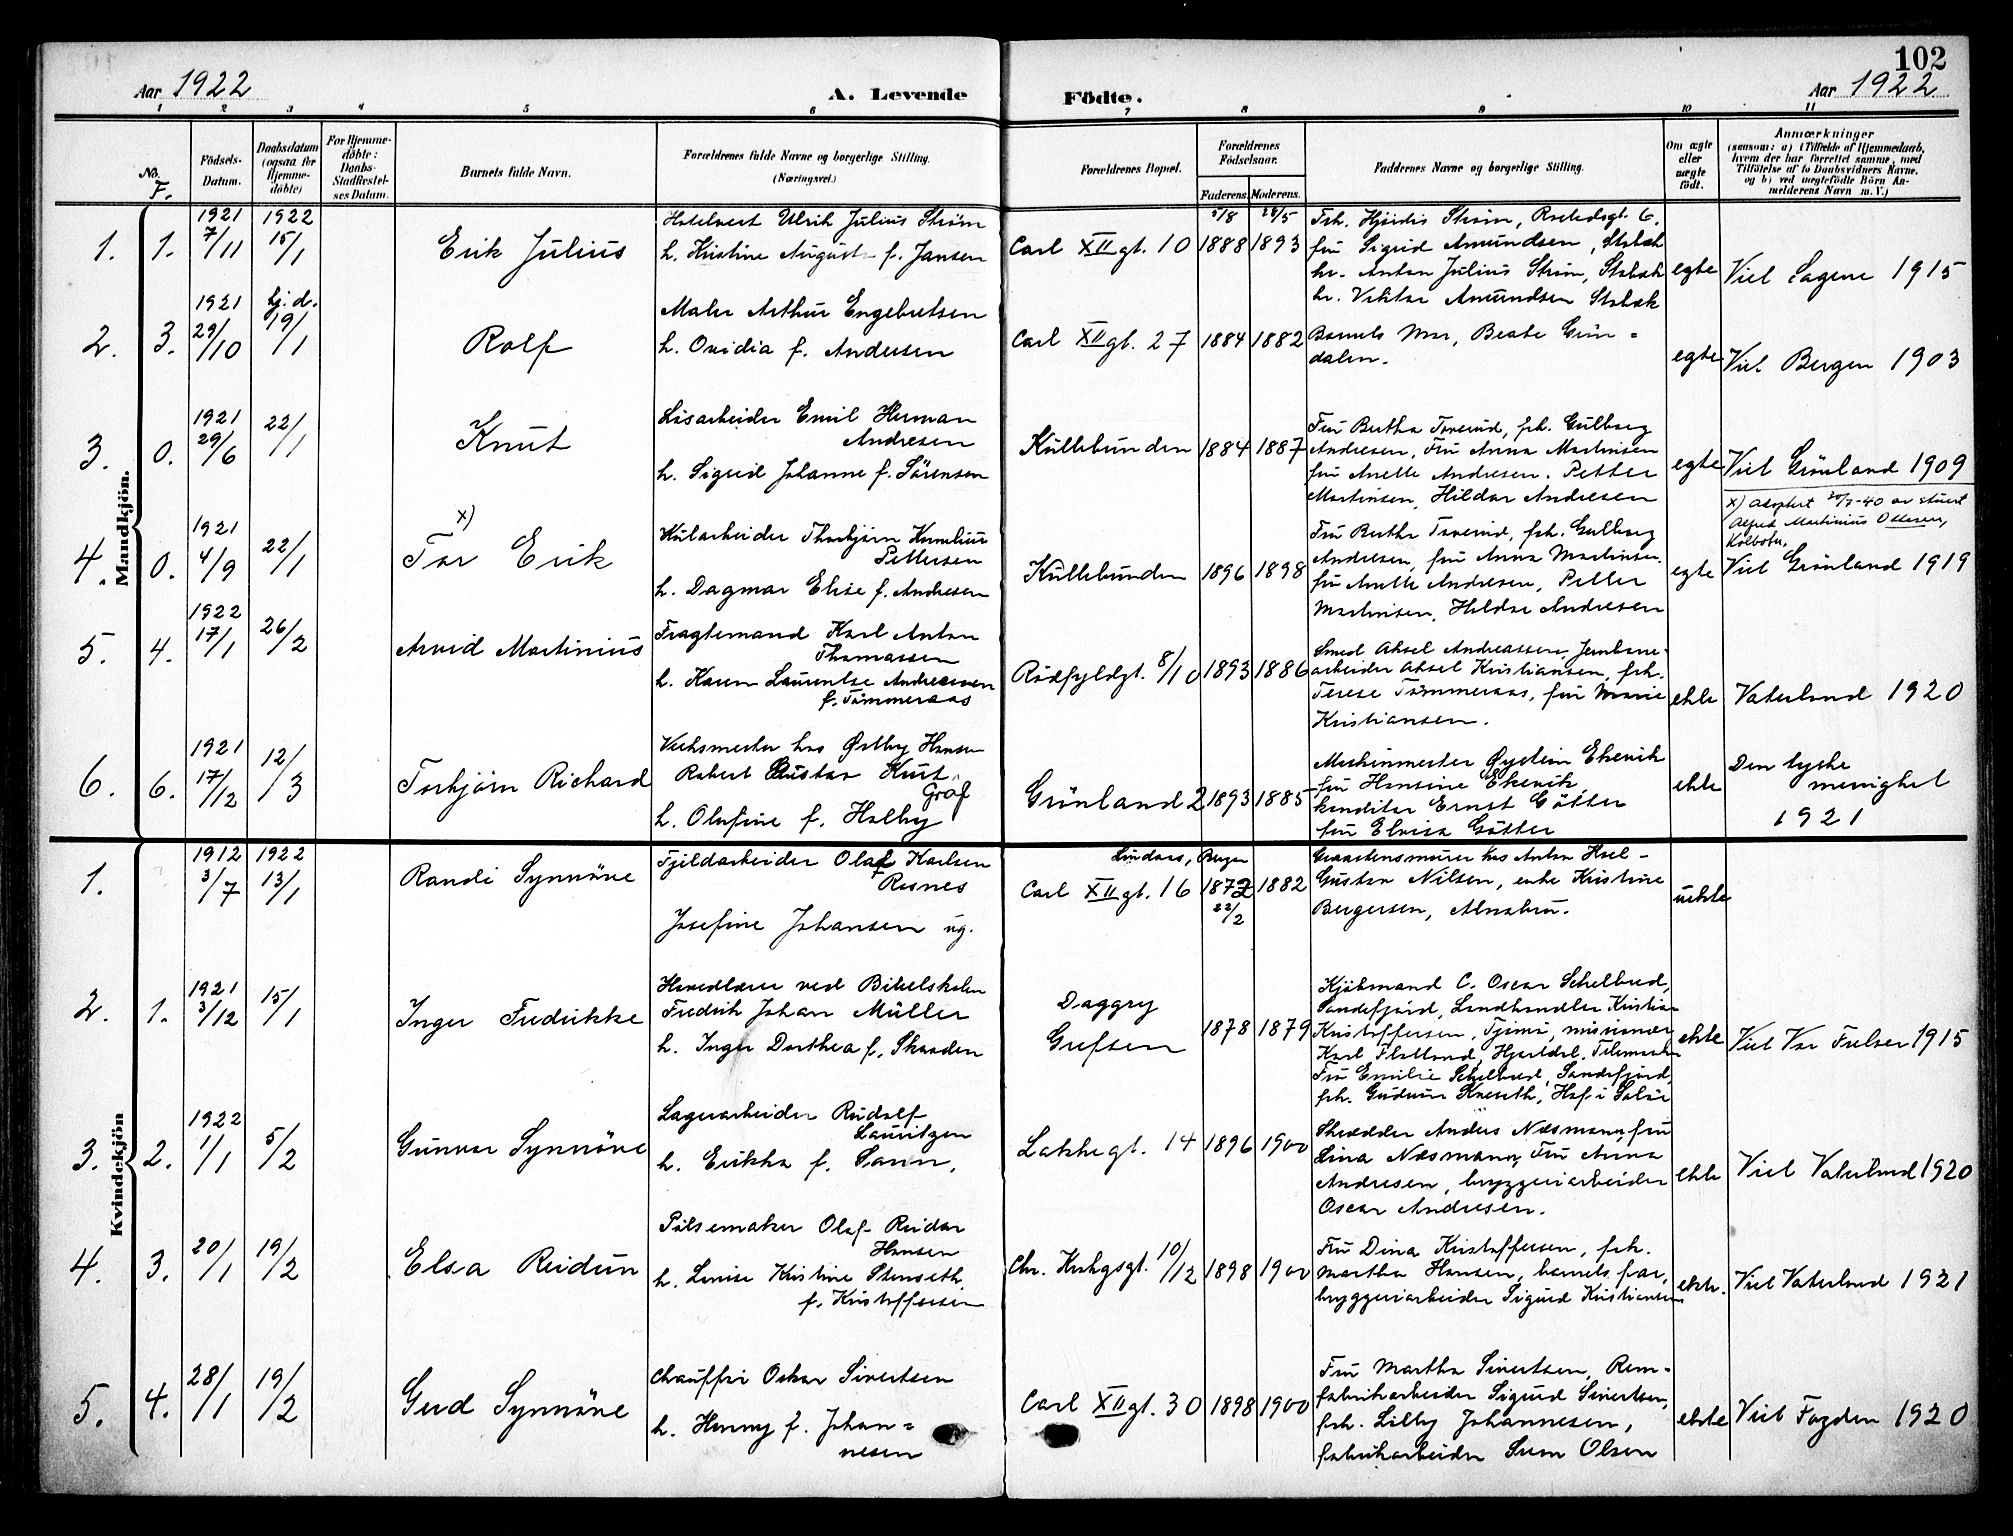 102
Aar 1922
A. Levende Födte.
Aar 1922
1 2 3 4 5 6 7 8 9 10 11
No. F.
Födsels-Datum.
Daabsdatum (ogsaa for Hjemmedöbte)
For Hjemmedöbte: Daabs-Stadfæstelses Datum.
Barnets fulde Navn.
Forældrenes fulde Navne og borgerlige Stilling. (Næringsvei.)
Forældrenes Bopæl.
Forældrenes Födselsaar.
Faderens. Moderens.
Faddernes Navne og borgerlige Stilling.
Om ægte eller uægte födt.
Anmærkninger
(saasom: a) i Tilfælde af Hjemmedaab,
hvem der har forrettet samme, med
Tilföielse af to Daabsvidners Navne.
og b) ved uegtefödte Börn An-
melderens Navn m. V.)
Mandkjön.
1. 1. 1921 7/11 1922 15/1
Erik Julius
Hotelvert Ulrik Julius Ström
h. Kristine August f. Jansen
Carl XII gt. 10
5/8 1888 28/5 1893
Frk. Hjördis Ström, Rosteds gt. 6.
fru Sigrid Amundsen, Stabæk
hr. Anton Julius Ström, Stabæk
hr. Viktor Amundsen Stabæk
egte
Viet Sagene 1915
2. 3. 1921 29/10 hj.d. 19/1
Rolf
Maler Arthur Engebretsen
h. Ovidia f. Andersen
Carl XII gt. 27
1884 1882
Barnets Mor, Beate Grön=
dalen.
egte
Viet Bergen 1903
3. 0. 1921 29/6 22/1
Knut
Løsarbeider Emil Herman
Andresen
h. Sigrid Johanne f. Sörensen
Kullebunden
1884 1887
Fru Bertha Toverud, frk. Gulborg
Andresen, Fru Anna Martinsen
fru Anette Andresen. Petter
Martinsen, Hildar Andresen
egte
Viet Grönland 1909
4. 0. 1921 4/9 22/1
x)
Tor Erik
Kularbeider Thorbjörn Kornelius
Pettersen
h. Dagmar Elise f. Andresen
Kullebunden
1896 1898
Fru Bertha Toverud, frk. Gulborg
Andresen, fru Anna Martinsen.
fru Anette Andresen, Petter
Martinsen, Hildar Andresen
egte
x) Adoptert 20/7-40 av stuert
Alfred Martinius Ottesen,
Kolbotn.
Viet Grönland 1919
5. 4. 1922 17/1 26/2
Arvid Martinius
Fragtemand Karl Anton
Thomassen
h. Karen Laurentse Andreassen
f. Tömmeraas
Rödfyldgt. 8/10
1893 1886
Smed Aksel Andreassen, Jernbane-
arbeider Aksel Kristiansen, frk.
Terese Tömmeraas, fru Marie
Kristiansen.
ekte
Vaterland 1920
6. 6. 1921 17/12 12/3
Torbjörn Richard
Verksmester hos Østbye Hansen
Robert Gustav Kurt
Graf
h. Olufine f. Holby
Grönland 2
1893 1885
Maskinmester Øystein Ekevik
fru Hansine Ekevik,
konditor Ernst Götter
fru Elvira Götter
ekte
Den tyske
menighet
1921
Kvindekjön
1. 1912 3/7 1922 13/1
Randi Synnöve
Fjeldarbeider Olaf Karlsen
Risnes
Josefine Johansen ug.
Carl XII gt. 16
Lindaas, Bergen
1872 22/2 1882
Graastensmurer hos Anton Hoel-
Gustav Nilsen, enke Kristine
Bergersen, Alnabru.
uekte
2. 1. 1921 3/12 15/1
Inger Fredrikke
Hovedlærer ved Bibelskolen
Fredrik Johan Müller
h. Inger Dorthea f. Skaaden
Daggry
Grefsen
1878 1879
Kjöbmand C. Oscar Schelbred,
Sandefjord, Landhandler Kristian
Kristoffersen, Tjömö, missionær
Karl Flatland, Hjartdal, Telemarken
Fru Emilie Schelbred, Sandefjord,
frk. Gudrun Kneseth, Hof i Solör
ekte
Viet Vor Frelser 1915
3. 2. 1922 1/1 5/2
Gunvor Synnöve
Lagerarbeider Rudolf
Lauritzen
h. Erikka f. Sann,
Lakkegt. 14
1896 1900
Skrædder Anders Næsmann, fru
Lina Næsmann, Fru Anna
Andresen, bryggeriarbeider
Oscar Andresen.
ekte
Viet Vaterland 1920
4. 3. 20/1 19/2
Elsa Reidun
Pölsemaker Olaf Reidar
Hansen
h. Louise Kristine Stenseth
f. Kristoffersen
Chr. Krohgsgt. 10/12
1898 1900
Fru Dina Kristoffersen, frk.
Martha Hansen, barnets far,
bryggeriarbeider Sigurd Kristiansen
ekte.
Viet Vaterland 1921
5. 4. 28/1 19/2
Gerd Synnöve
Chauffør Oskar Sivertsen
h. Henny f. Johan=
nesen
Carl XII gt. 30
1898 1900
Fru Martha Sivertsen, Rem=
fabrikarbeider Sigurd Sivertsen,
frk. Lilly Johannesen,
fabrikarbeider Olsen
ekte
1920